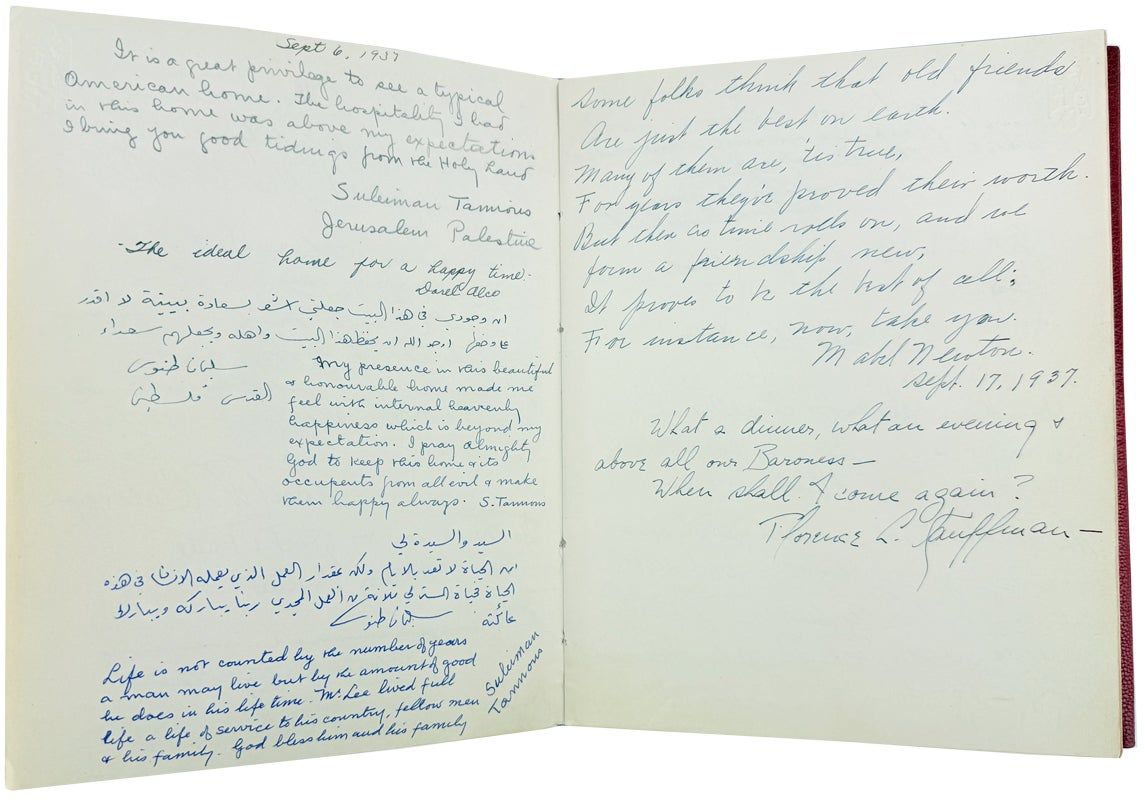 Sept 6, 1937
It is a great privilege to see a typical
American home. The hospitality I had
in this home was above my expectations
I bring you good tidings from the Holy Land
Suleiman Tannous
Jerusalem Palestine
The ideal home for a happy time.
ان وجودي في هذا البيت جعلني اشعر بسعادة بيتية لا اقدر
على وصفها ارجو الله ان يحفظ هذا البيت واهله ويجعلهم سعداء
سليمان طنوس
القدس فلسطين
My presence in this beautiful
& honourable home made me
feel with internal heavenly
happiness which is beyond my
expectation. I pray Almighty
God to keep this home & its
occupents from all evil & make
them happy always. S. Tannous
السيد والسيدة لي
ان الحياة لا تعد بالايام ولكن بمقدار العمل الذي يعمله الانسان في هذه
الحياة فحياة المستر لي من العمل المجدي ربنا يباركه ويبارك
عائلته سليمان طنوس
Life is not counted by the number of years
a man may live but by the amount of good
he does in his life time. Mr Lee lived full
life a life of service to his country, fellow men
& his family. God bless him and his family
Suleiman
Tannous
Some folks think that old friends
Are just the best on earth.
Many of them are, 'tis true,
For years they've proved their worth.
But then as time rolls on, and we
form a friendship new,
It proves to be the best of all;
For instance, now, take you.
Mabel Newton.
Sept. 17, 1937.
What a dinner, what an evening &
above all our Baroness—
When shall I come again?
Florence L. Kauffman—